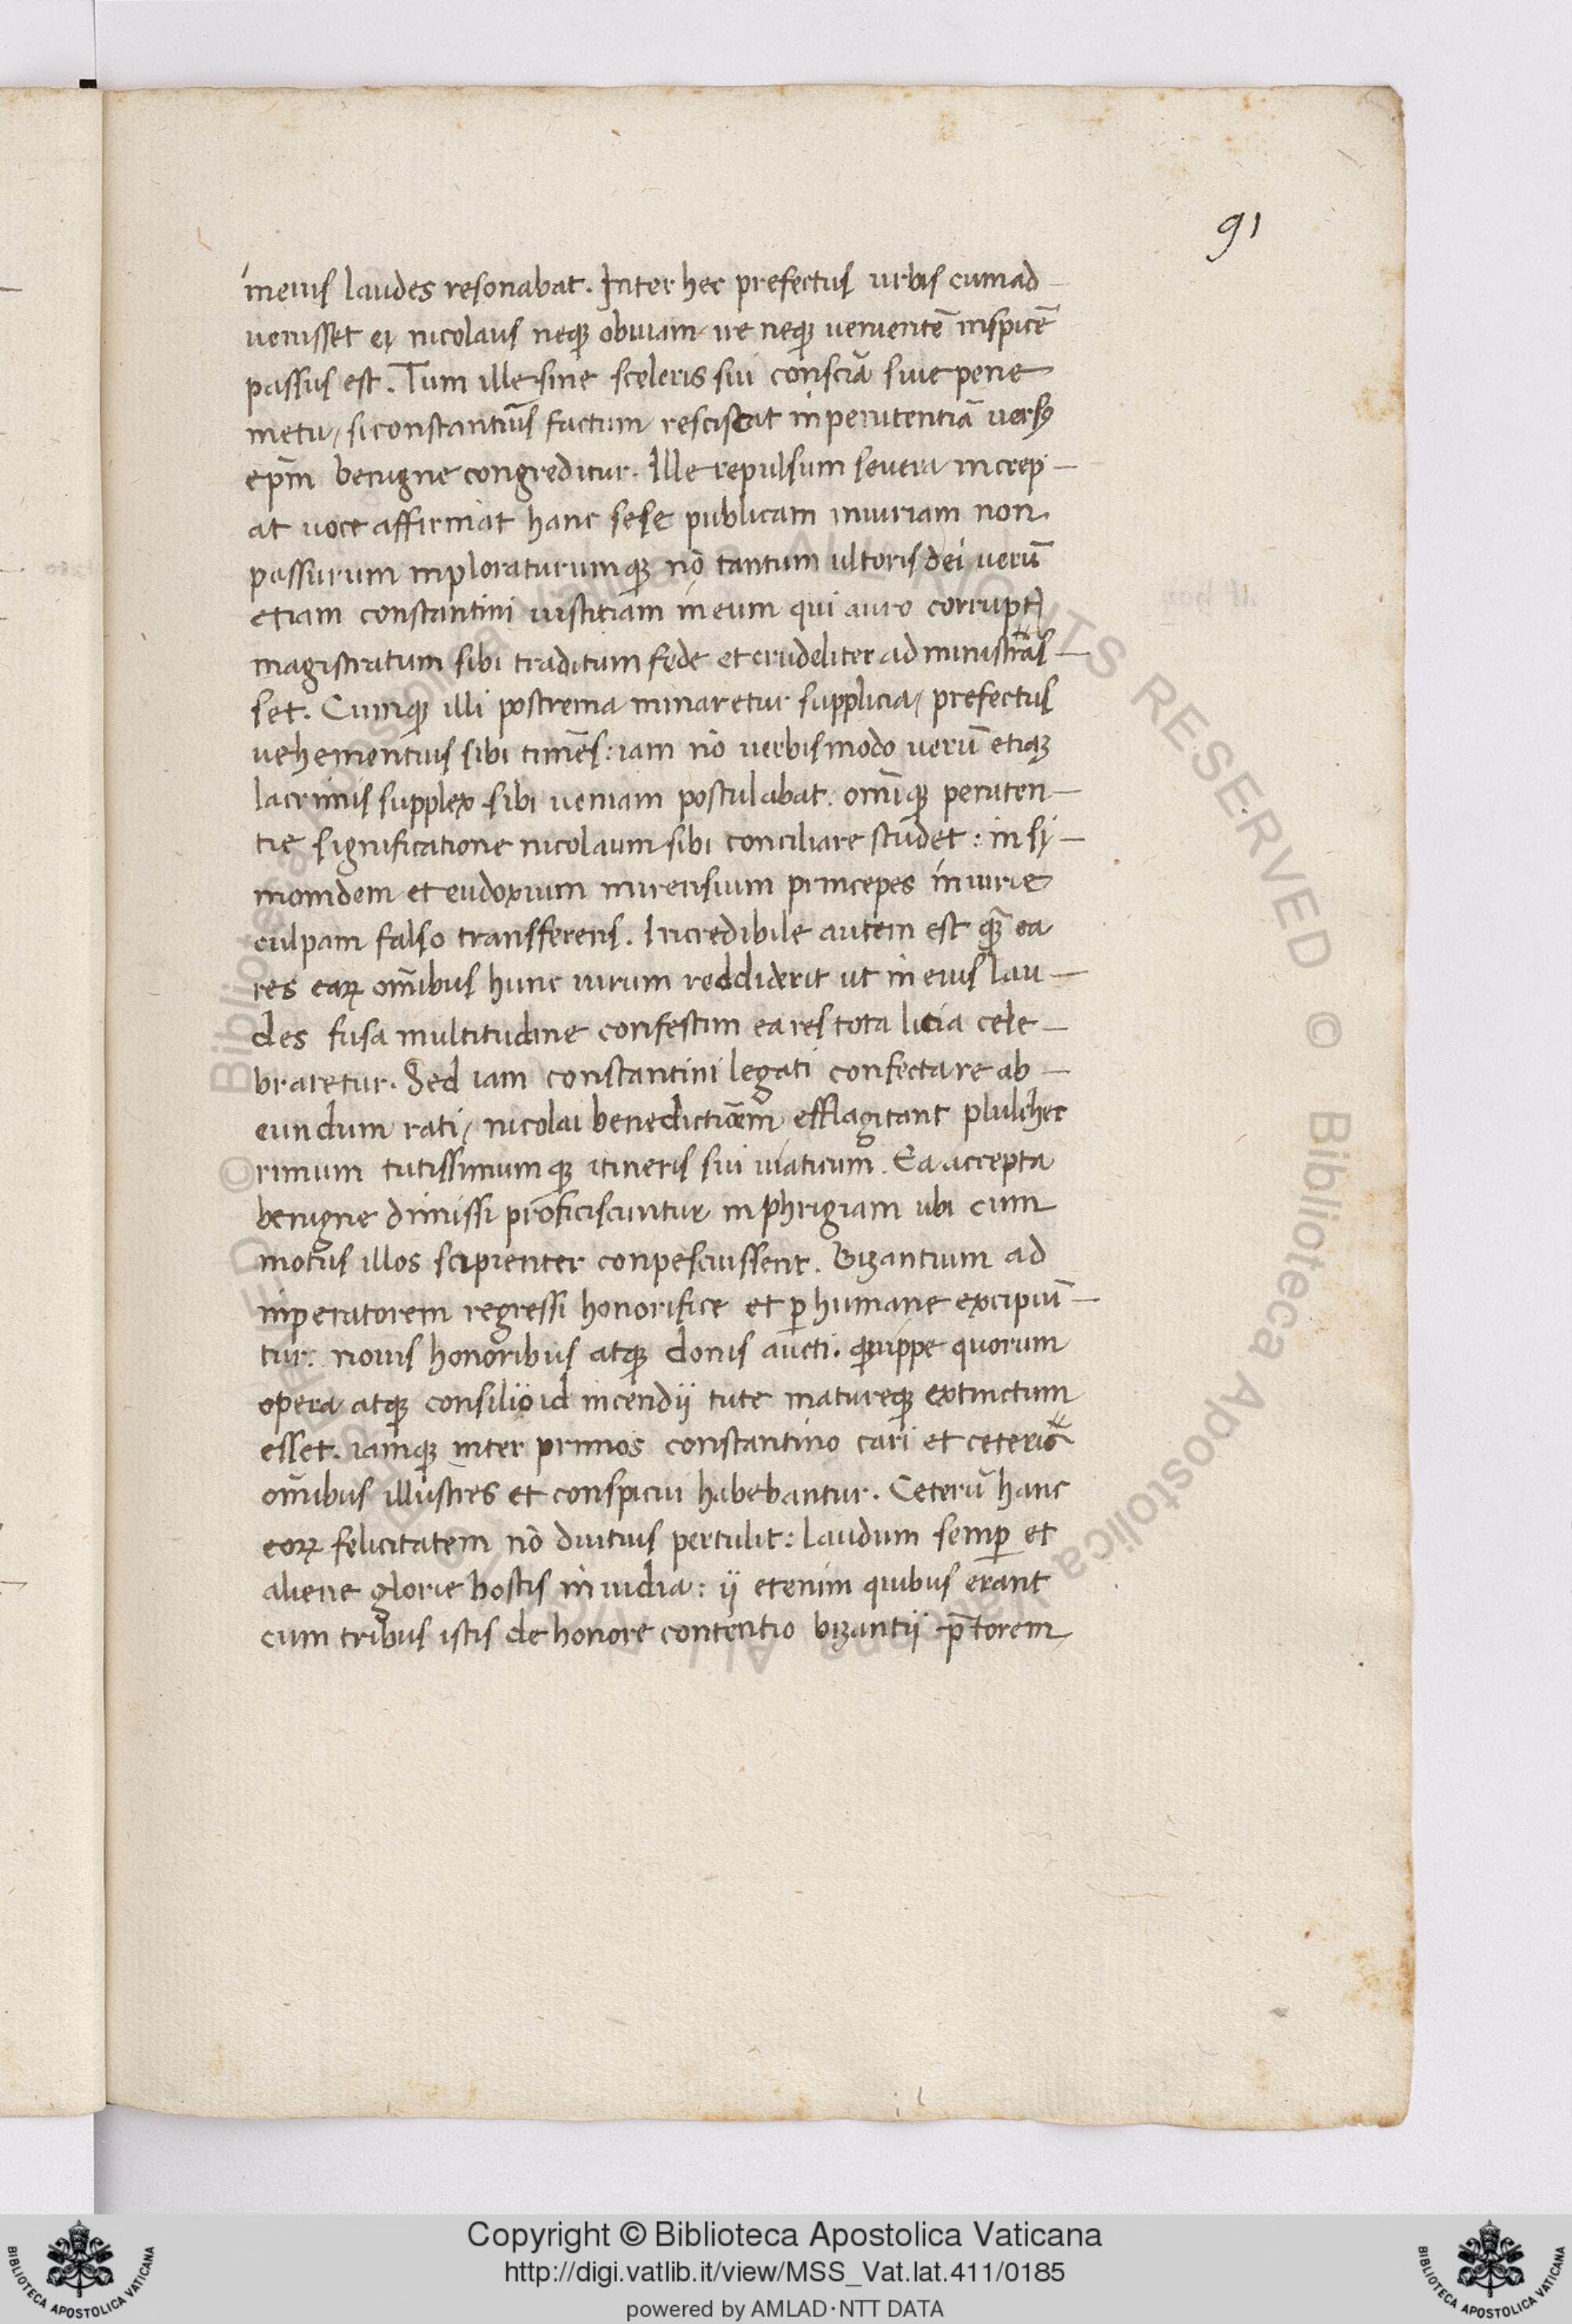 91
in eius laudes resonabat. Inter hec prefectus urbis cum ad
uenisset ei nicolaus neq; obuiam ire neq; uenientē inspicē
passus est. Tum ille siue sceleris sui consciā siue pene
metu, si constantiūs factum resciscat in penitentiā uersꝰ
ep̄m benigne congreditur. Ille repulsum seuera increp-
at uoce affirmat hanc sese publicam iniuriam non
passurum inploraturumq; nō tantum ultoris dei uerū
etiam constantini iustitiam in eum qui auro corrupt
magistratum sibi traditum fede et crudeliter administras-
set. Cumq; illi postrema minaretur supplicia, prefectus
uehementius sibi timēs: iam nō uerbis modo uerū etiaȝ
lacrimis supplex sibi ueniam postulabat. omīq; peniten-
tie significatione nicolaum sibi conciliare studet: in sy-
monidem et eudoxium mirensium princepes iniurie
culpam falso transferens. Incredibile autem est q̄ ea
res caꝝ om̄ibus hunc uirum reddiderit ut in eius lau-
des fusa multitudine confestim ea res tota licia cele-
braretur. Sed iam constantini legati confecta re ab-
eundum rati, nicolai benedictiōem efflagitant plulcher
rimum tutissimumq; itineris sui uiaticum. Ea accepta
benigne dimissi proficiscuntur in phrigiam ubi cum
motus illos scipienter conpescuissent. Bizantium ad
inperatorem regressi honorifice et ꝑhumane excipiū-
tur: nouis honoribus atq; donis aucti. quippe quorum
opera atq; consilijo id incendij tute matureq; extinctum
esset. iamq; inter primos constantino cari et ceteris
om̄ibus illustres et conspicui habebantur. Ceterū hanc
eoꝝ felicitatem nō diutius pertulit: laudum semꝑ et
aliene glorie hostis inuidia: ij etenim quibus erant
cum tribus istis de honore contentio bizantij p̄torem
Copyright © Biblioteca Apostolica Vaticana
http://digi.vatlib.it/view/MSS_Vat.lat.411/0185
powered by AMLAD·NTT DATA